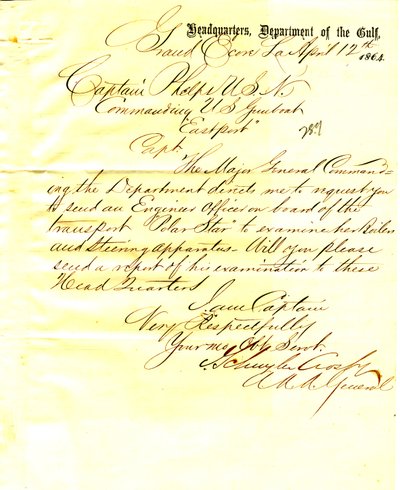 Headquarters, Department of the Gulf,
Grand Ecore La April 12th 1864.
Captain Phelps U.S.N.
Commanding U S Gunboat
"Eastport"
Capt.
The Major General Command-
ing the Department directs me to request you
to send an Engineer Officer on board of the
transport "Polar Star" to examine her Boilers
and Steering apparatus. Will you please
send a report of his examination to these
Head Quarters
I am Captain
Very Respectfully
Your mo. Obt. Servt.
J. Schuyler Crosby
A.A.A. General